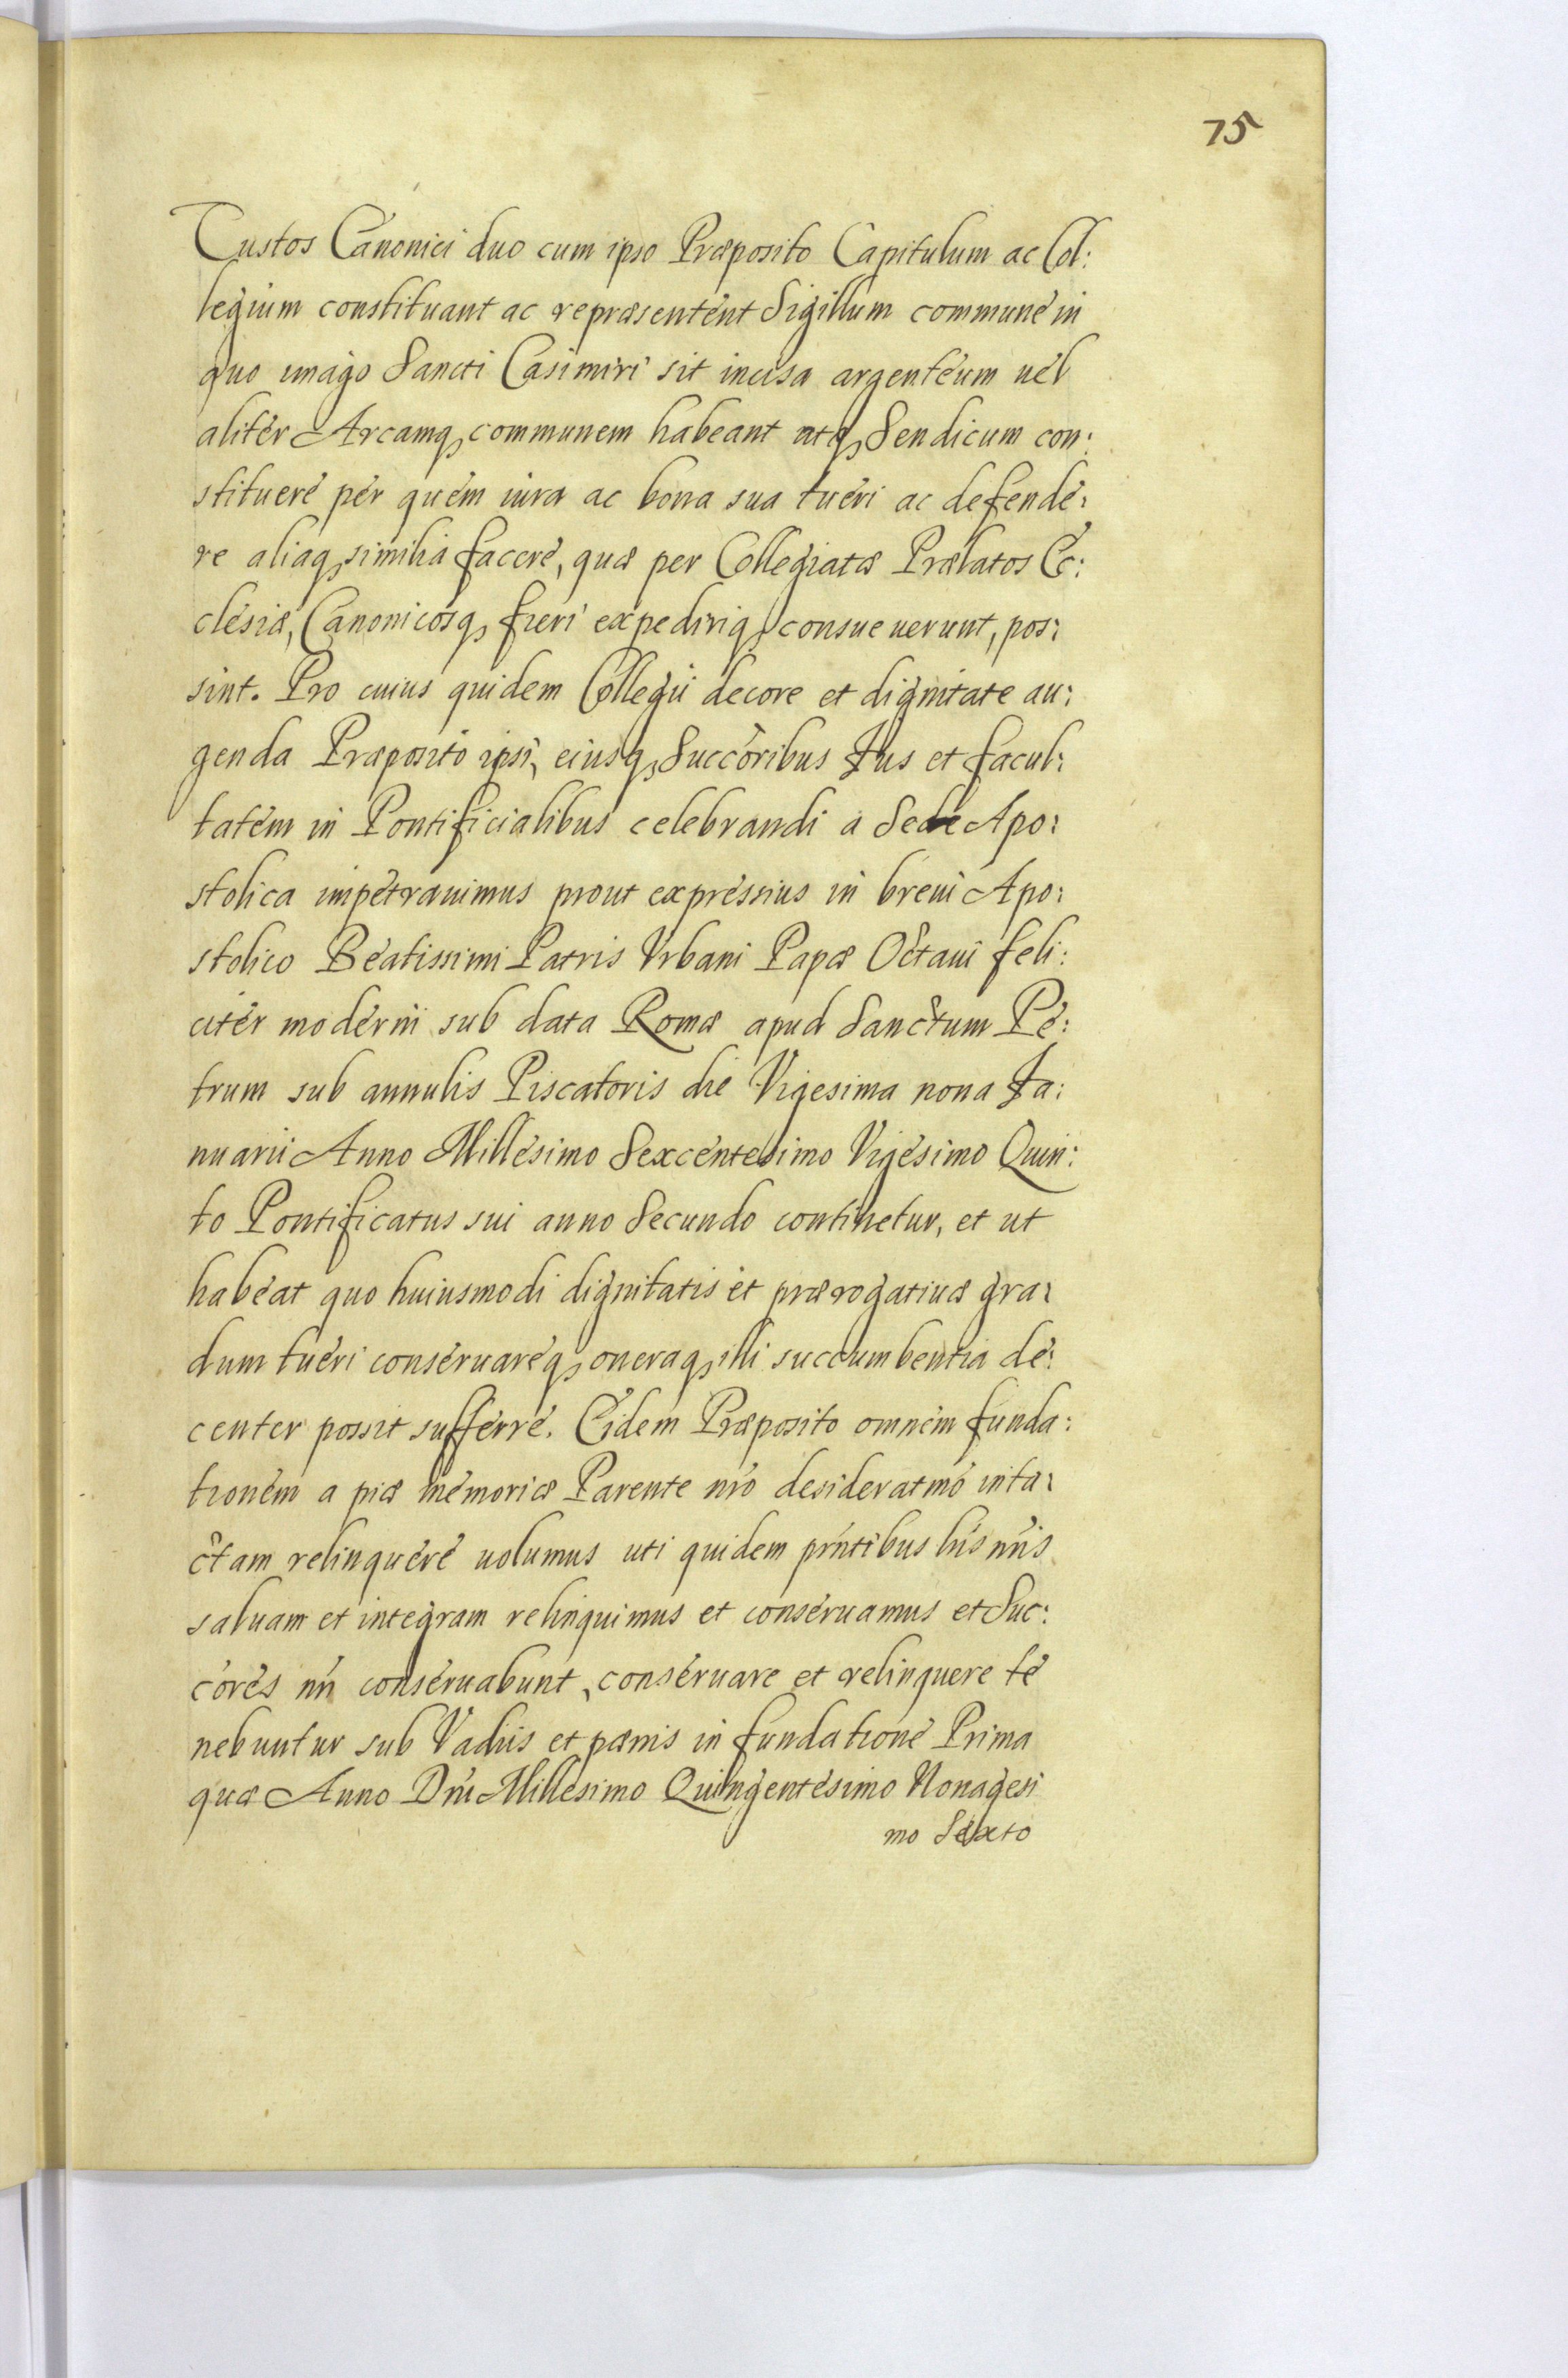 75
Custos Canonici duo cum ipso Præposito Capitulum ac Col:
legium constituant ac repræsentent Sigillum commune in
quo imago Sancti Casimiri sit incisa argenteum uel
aliter Arcamq, communem habeant utq, Sendicum con:
stituere per quem iura ac bona sua tueri ac defende:
re aliaq, similia facere, quæ per Collegiatæ Prælatos Ec:
clesiæ, Canonicosq, fieri expediriq, consueuerunt, pos:
sint. Pro cuius quidem Collegii decore et dignitate au:
genda Præposito ipsi, eiusq, Succoribus Jus et facul:
tatem in Pontificialibus celebrandi a Sede Apo:
stolica impetrauimus prout expressius in breui Apo:
stolico Beatissimi Patris Vrbani Papæ Octaui feli:
citer moderni sub data Romæ apud Sanctum Pe:
trum sub annulis Piscatoris die Vigesima nona Ja:
nuarii Anno Millesimo Sexcentesimo Vigesimo Quin:
to Pontificatus sui anno Secundo continetur, et ut
habeat quo huiusmodi dignitatis et prærogatiuæ gra:
dum tueri conseruareq, oneraq, illi succumbentia de:
center possit sufferre. Eidem Præposito omnem funda:
tionem a piæ memoriæ Parente nro desideratmo inta:
ctam relinquere uolumus uti quidem prntibus lris nris
saluam et integram relinquimus et conseruamus et Suc:
cores nri conseruabunt, conseruare et relinquere te
nebuntur sub Vadiis et pænis in fundatione Prima
quæ Anno Dni Millesimo Quingentesimo Nonagesi
mo Sexto